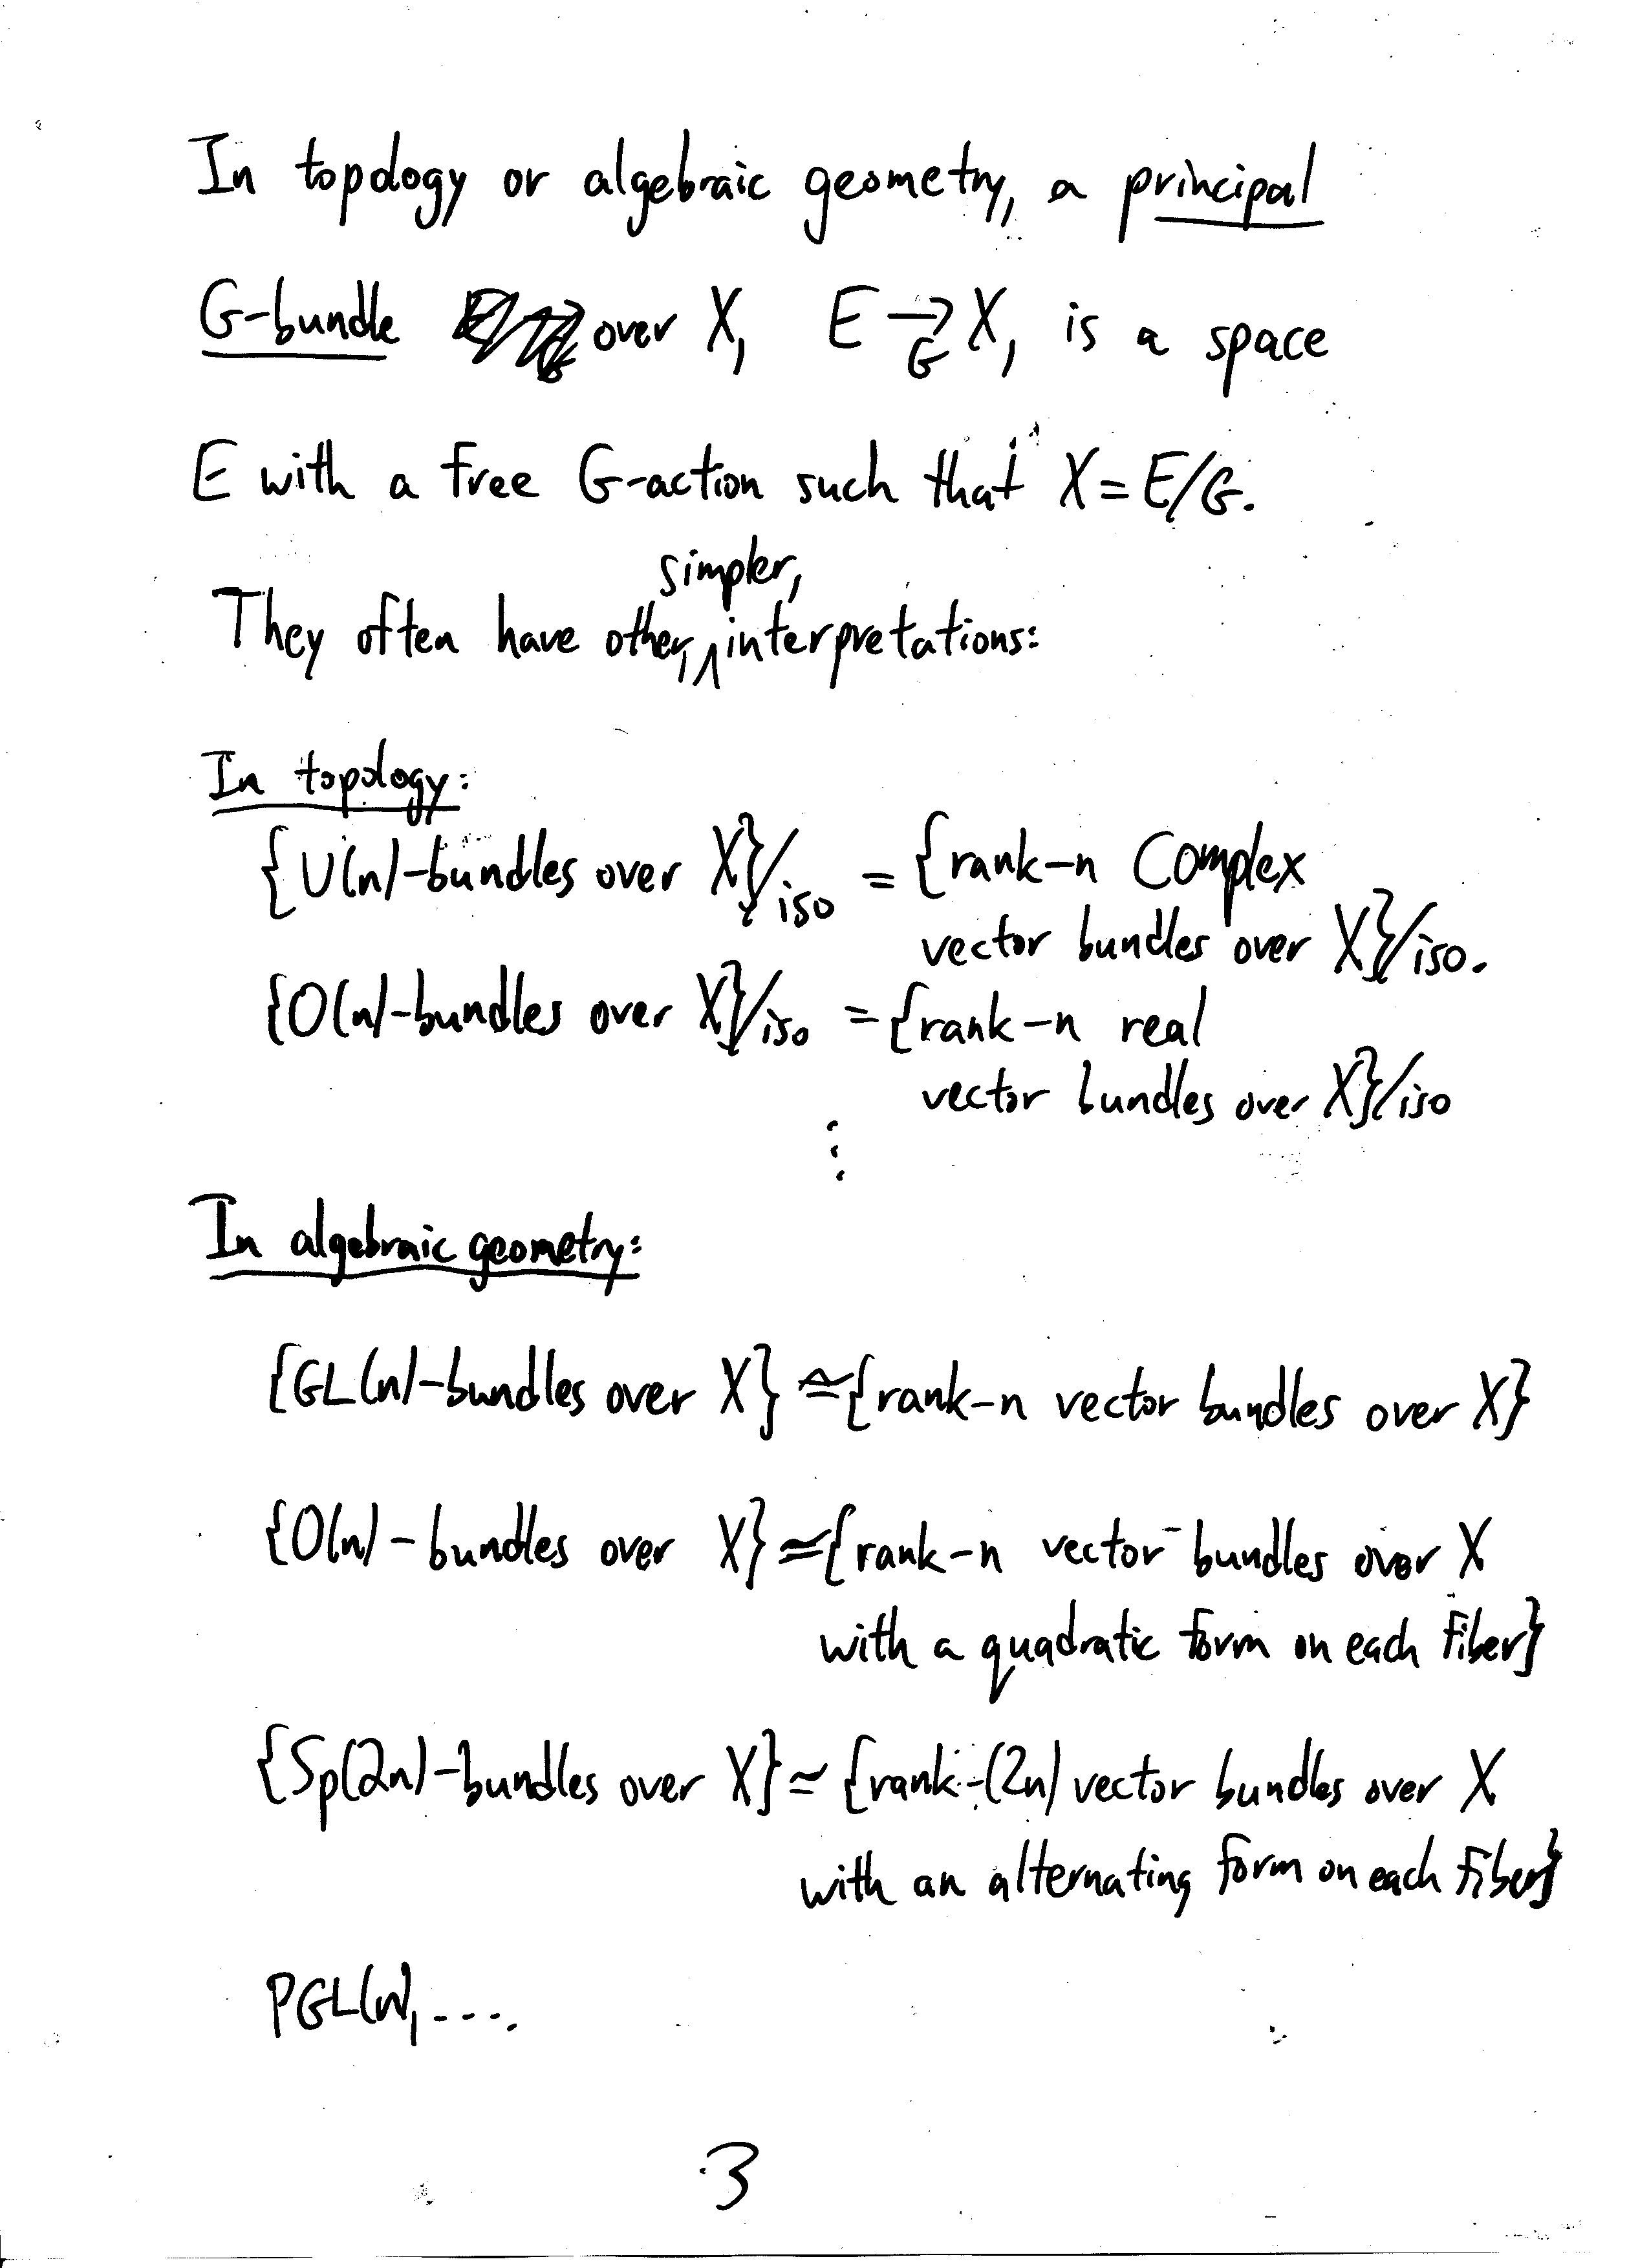 In topology or algebraic geometry, a principal
G-bundle over X, E →_G X, is a space
E with a free G-action such that X = E/G.
simpler,
They often have other, ∧ interpretations:
In topology:
{U(n)-bundles over X}/iso = {rank-n complex
vector bundles over X}/iso.
{O(n)-bundles over X}/iso = {rank-n real
vector bundles over X}/iso
⋮
In algebraic geometry:
{GL(n)-bundles over X} ≃ {rank-n vector bundles over X}
{O(n)-bundles over X} ≃ {rank-n vector bundles over X
with a quadratic form on each fiber}
{Sp(2n)-bundles over X} ≃ {rank-(2n) vector bundles over X
with an alternating form on each fiber}
PGL(n), ....
3